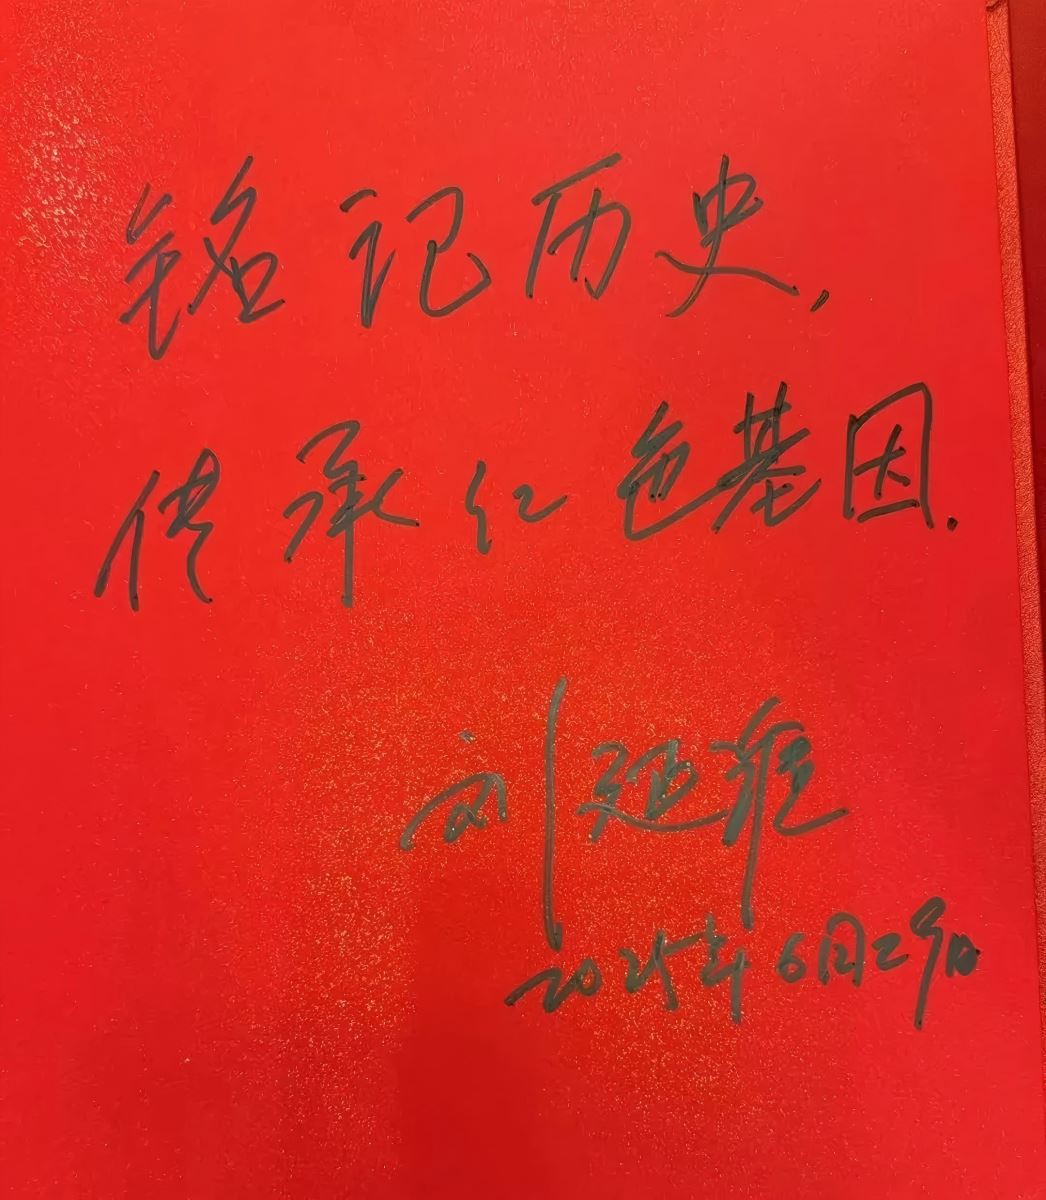 铭记历史,
传承红色基因.
刘延淮
2025年6月29日